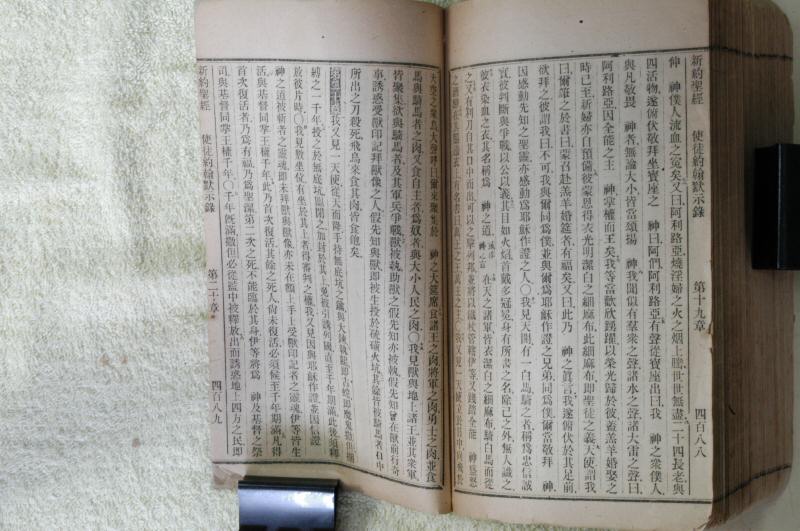 新約聖經　使徒約翰默示錄　第十九章　四百八八
伸　神僕人流血之冤矣又曰阿利路亞燒淫婦之火之烟上騰世世無盡二十四長老與
四活物遂俯伏敬拜坐寶座之　神曰阿們阿利路亞有聲從寶座出曰我　神之衆僕人
與凡敬畏　神者無論大小皆當頌揚　神我聞似有羣衆之聲諸水之聲諸大雷之聲曰
阿利路亞因全能之主　神掌權而王矣我等當歡欣踴躍以榮光歸於彼蓋羔羊婚娶之
時已至新婦亦自預備彼蒙恩得衣光明潔白之細麻布此細麻布即聖徒之義天使謂我
曰爾筆之於書曰蒙召赴羔羊婚筵者有福矣又曰此乃　神之眞言我遂俯伏於其足前
欲拜之彼謂我曰不可我與爾同爲僕並與爾爲耶穌作證之兄弟同爲僕爾當敬拜　神
因感動先知之聖靈亦感動爲耶穌作證之人〇我見天開有一白馬騎之者稱爲忠信誠
實彼判斷與爭戰以公以義其目如火焰首戴多冠冕身有所書之名除己之外無人識之
彼衣染血之衣其名稱爲　神之道在天之諸軍皆衣潔白之細麻布騎白馬而從
之又有利刃自其口中而出可以之擊列邦並將以鐵杖管轄伊等又踐全能　神
馬與騎馬者之肉又食自主者爲奴者與大小人民之肉〇我見獸與地上諸王並其衆軍
皆聚集欲與騎馬者及其軍兵爭戰獸被執助獸之假先知亦被執假先知曾在獸前行奇
事誘惑受獸印記拜獸像之人假先知與獸即被生投於硫磺火坑其餘皆被騎馬者口中
所出之刀殺死飛鳥來食其肉皆食飽矣
我又見一天使從天而降手持無底坑之鑰與大鍊
縛之一千年投之於無底坑
放彼片時〇我見數座位有坐於其上者得審判之權我又見因與耶穌作證並因信證
神之道被斬者之靈魂即未拜獸與獸像亦未在額上手上受獸印記者之靈魂伊等皆生
活與基督同掌王權千年此乃首次復活其餘之死人尙未復活必須候至千年期滿凡得
首次復活者乃爲有福乃爲聖潔第二次之死不能臨於其身伊等將爲　神及基督之祭
司與基督同掌王權千年〇千年旣滿撒但必從監中被釋放出而誘惑地上四方之民即
新約聖經　使徒約翰默示錄　第二十章　四百八九